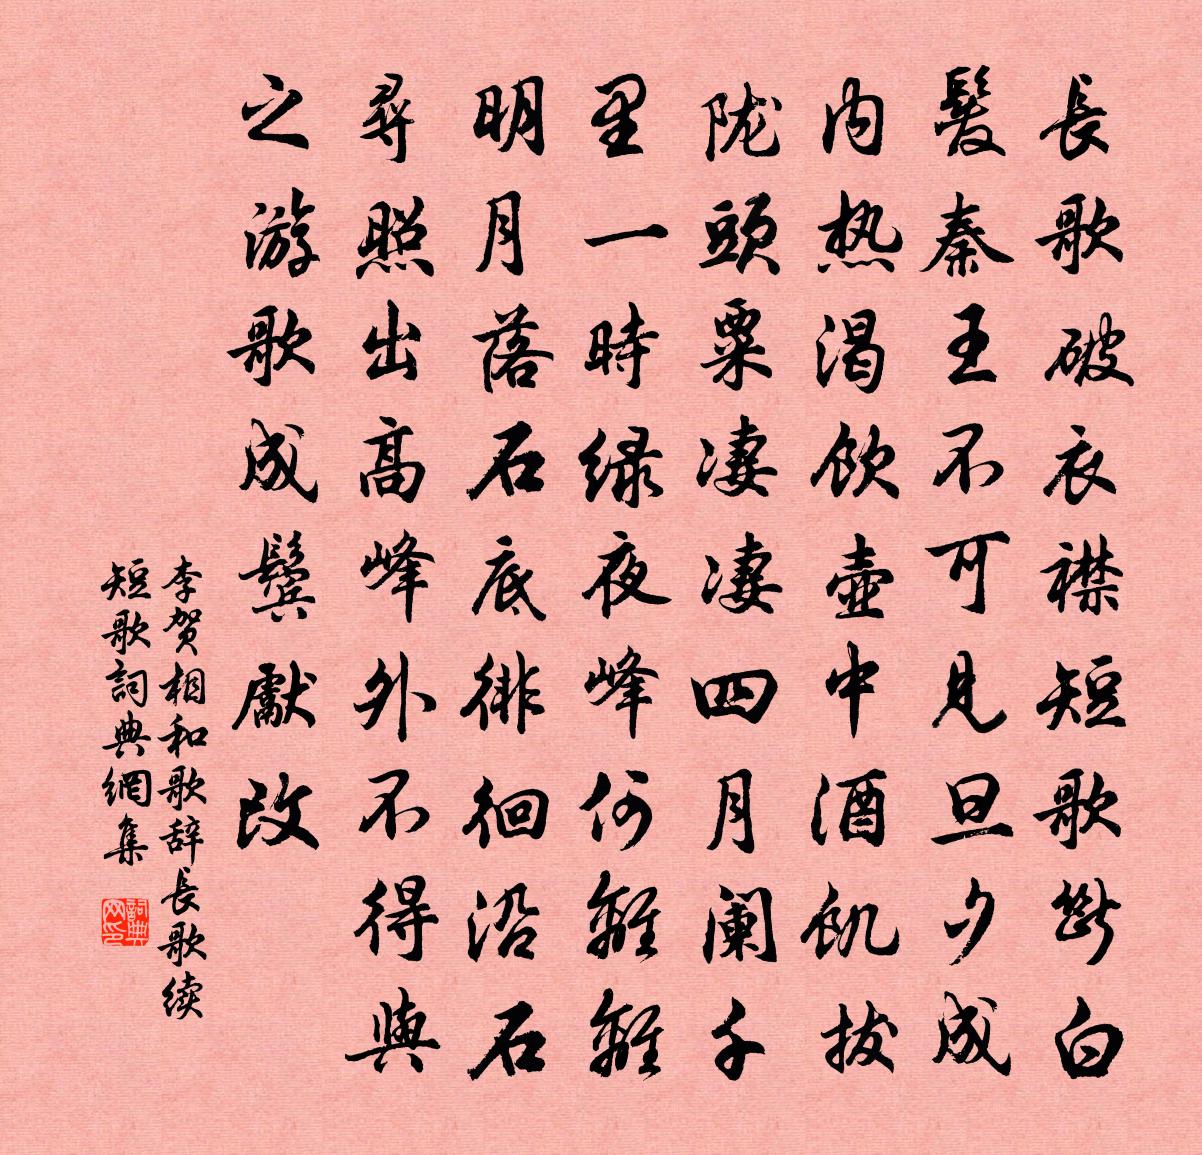 長歌破衣襟短歌斷白
髮秦王不可見旦夕成
内热渴飲壺中酒飢拔
陇頭粟凄凄四月阑千
里一時绿夜峰何離離
明月落石底徘徊沿石
尋照出高峰外不得與
之游歌成鬢獻改
李贺相和歌辞長歌续
短歌詞典網集
詞典网印